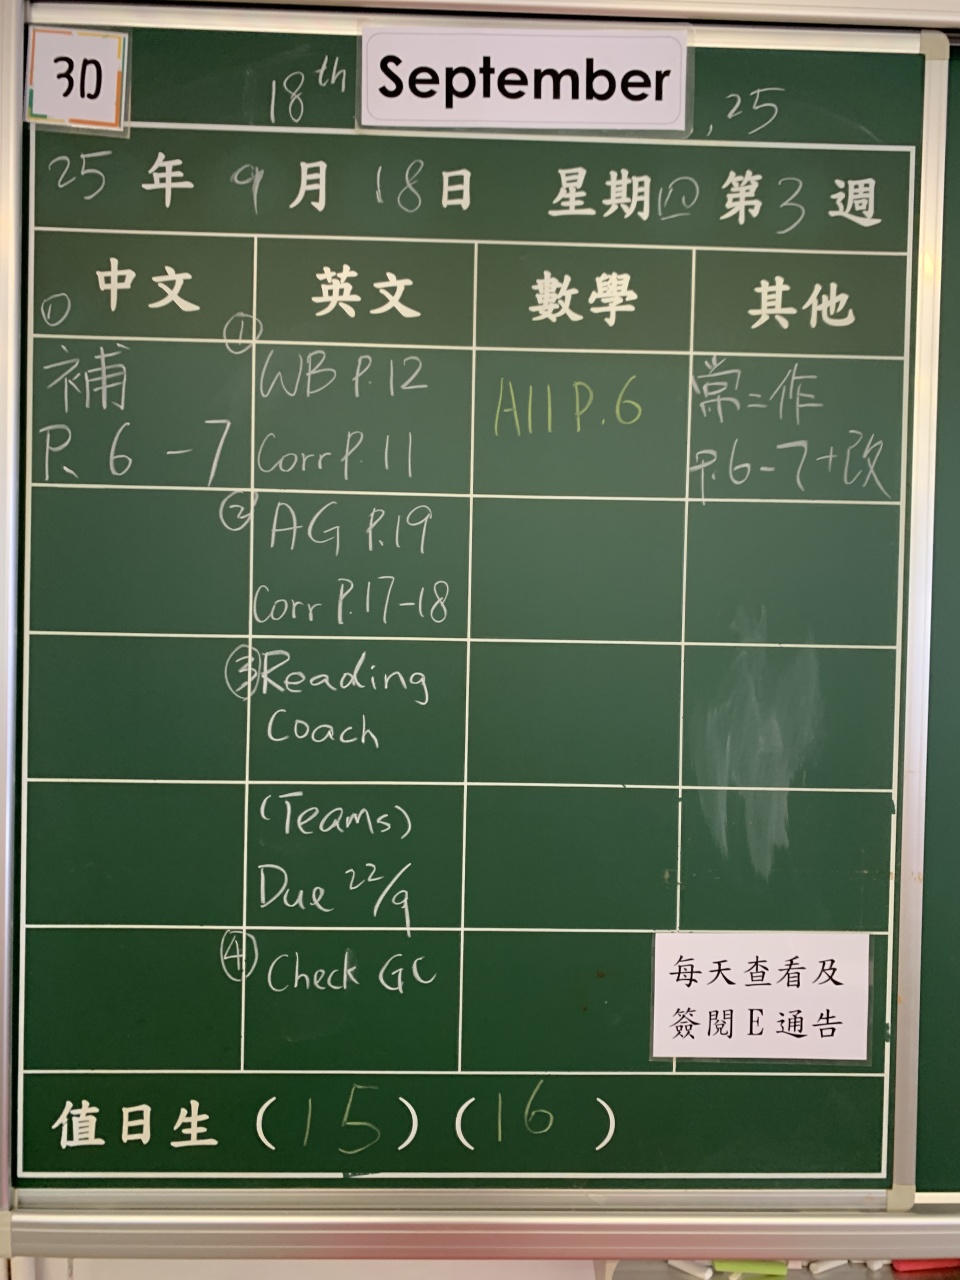 3D
18th September , 25
25年 9月 18日 星期四 第3週
中文 英文 數學 其他
① 補
P. 6-7
① WB P.12
Corr P.11
② AG P.19
Corr P.17-18
③ Reading
Coach
(Teams)
Due 22/9
④ Check GC
All P.6
常二作
P.6-7+改
每天查看及
簽閱E通告
值日生 (15) (16)